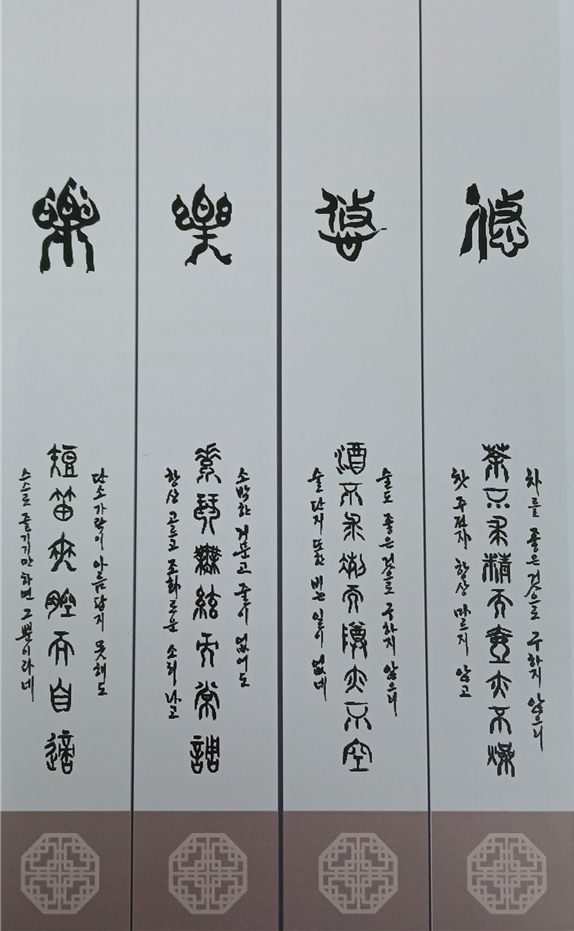 悠
茶不求精而壺亦不燥
차를 좋은것으로 구하지 않으니
찻주전자 항상 마르지 않고
悠
酒不求冽而樽亦不空
술도 좋은것으로 구하지 않으니
술 단지 또한 비는 일이 없네
樂
素琴無絃而常調
소박한 거문고 줄이 없어도
항상 고르고 조화로운 소리 나고
樂
短笛無腔而自適
단소가락이 아름답지 못해도
스스로 즐기기만 하면 그뿐이라네